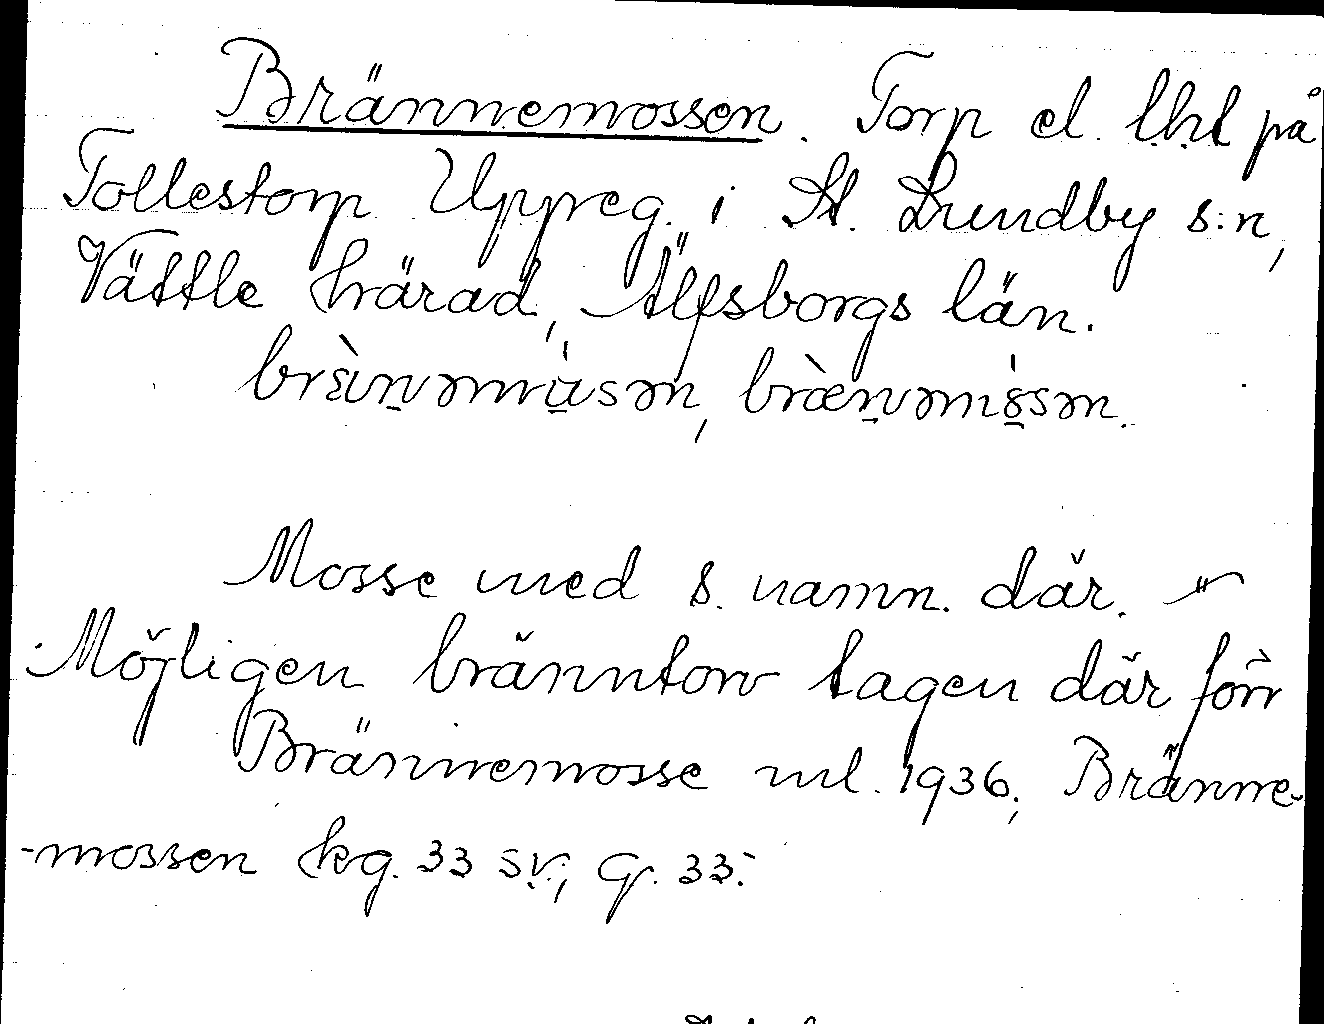 Brännemossen. Torp el. lht på
Tollestorp Uppreg. i St. Lundby s:n,
Vättle härad, Älfsborgs län.
Mosse med s. namn. där. —"—
Möjligen bränntorv tagen där förr
Brännemosse ml. 1936; Bränne-
-mossen kg. 33 SV; G. 33.